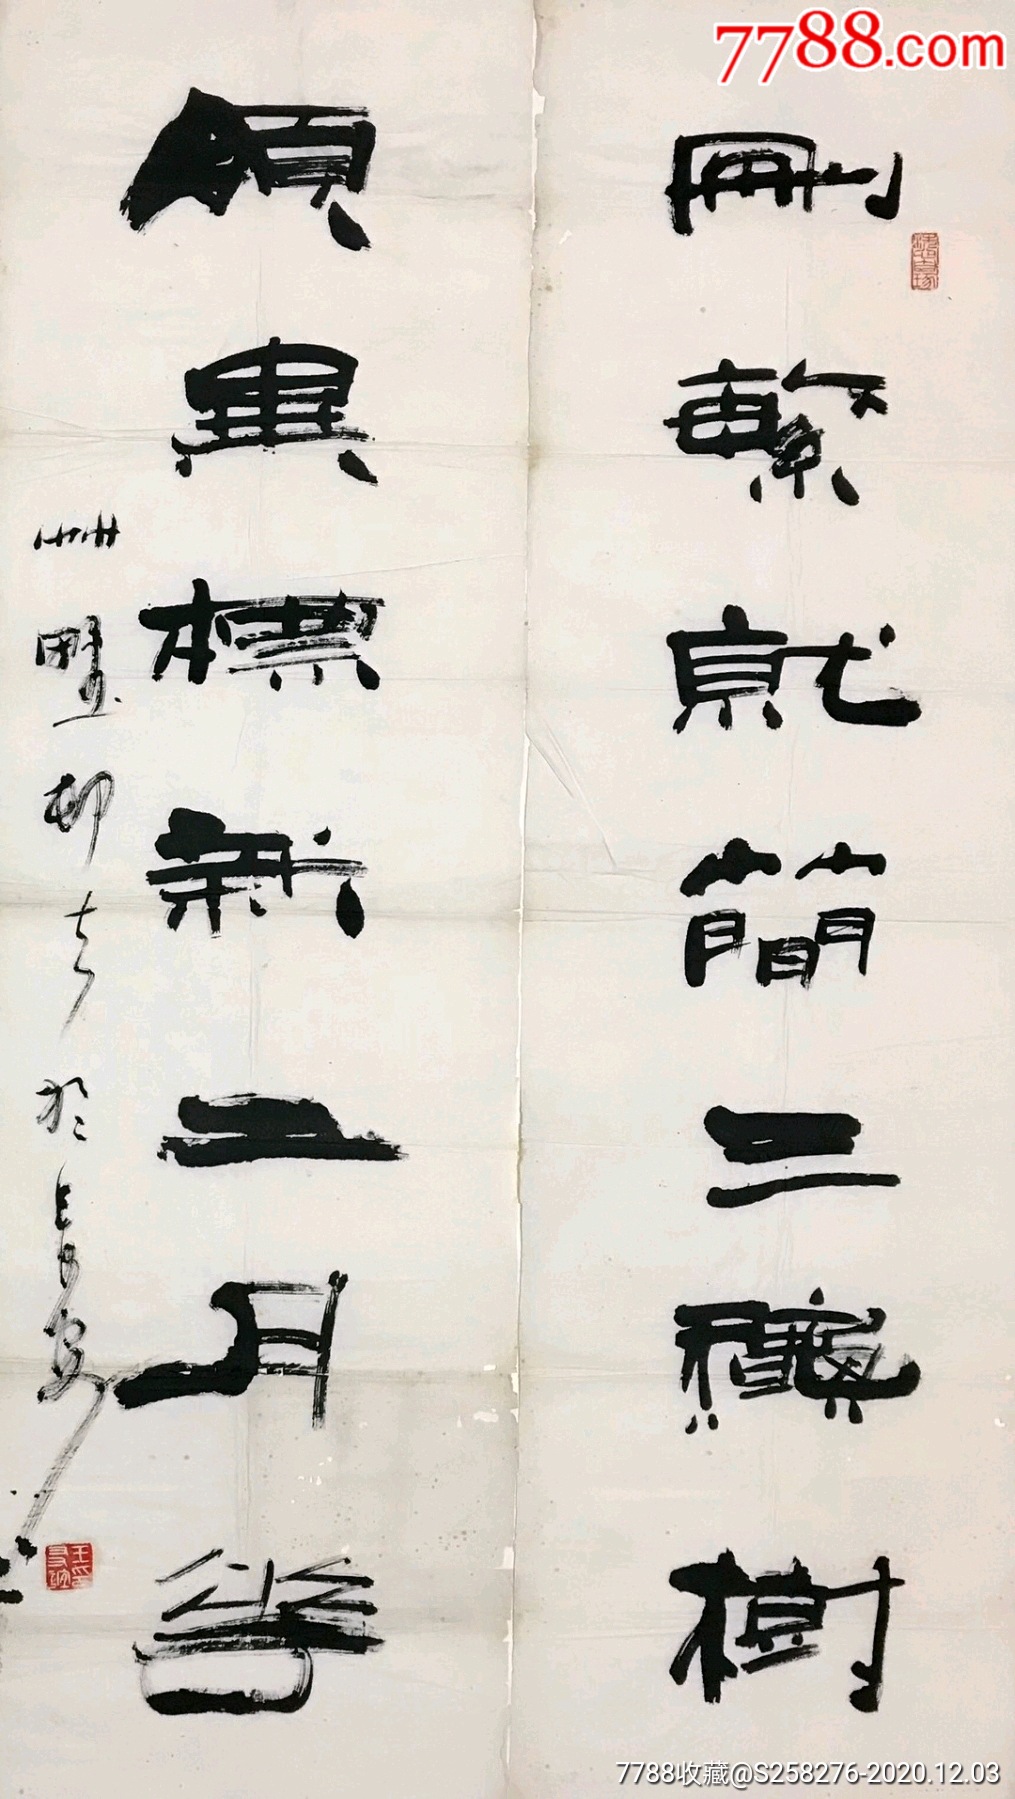 7788.com
刪繁就簡三穐樹
領異標新二月花
於長安
7788收藏@S258276-2020.12.03